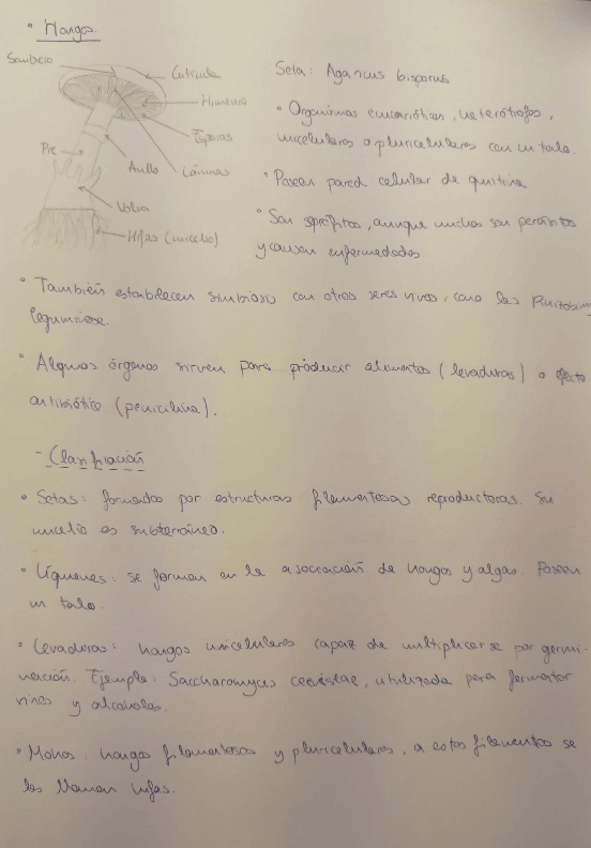 • Hongos.
Sombrero
Cutícula
Himenio
Esporas
Pie
Anillo
Láminas
Volva
Hifas (micelio)
Seta: Agaricus bisporus
• Organismos eucarióticos, heterótrofos,
unicelulares o pluricelulares con un talo.
• Poseen pared celular de quitina
• Son saprófitos, aunque muchos son parásitos
y causan enfermedades.
• También establecen simbiosis con otros seres vivos, como las
leguminosae.
• Algunos órganos sirven para producir alimentos (levaduras) o efecto
antibiótico (penicilina).
- Clasificación
• Setas: formados por estructuras filamentosas reproductoras. Su
micelio es subterráneo.
• Líquenes: se forman en la asociación de hongos y algas. Poseen
un talo.
• Levaduras: hongos unicelulares capaz de multiplicarse por germi-
nación. Ejemplo: Saccharomyces cerevisiae, utilizada para fermentar
vinos y alcoholes.
• Mohos: hongos filamentosos y pluricelulares, a estos filamentos se
les llaman hifas.